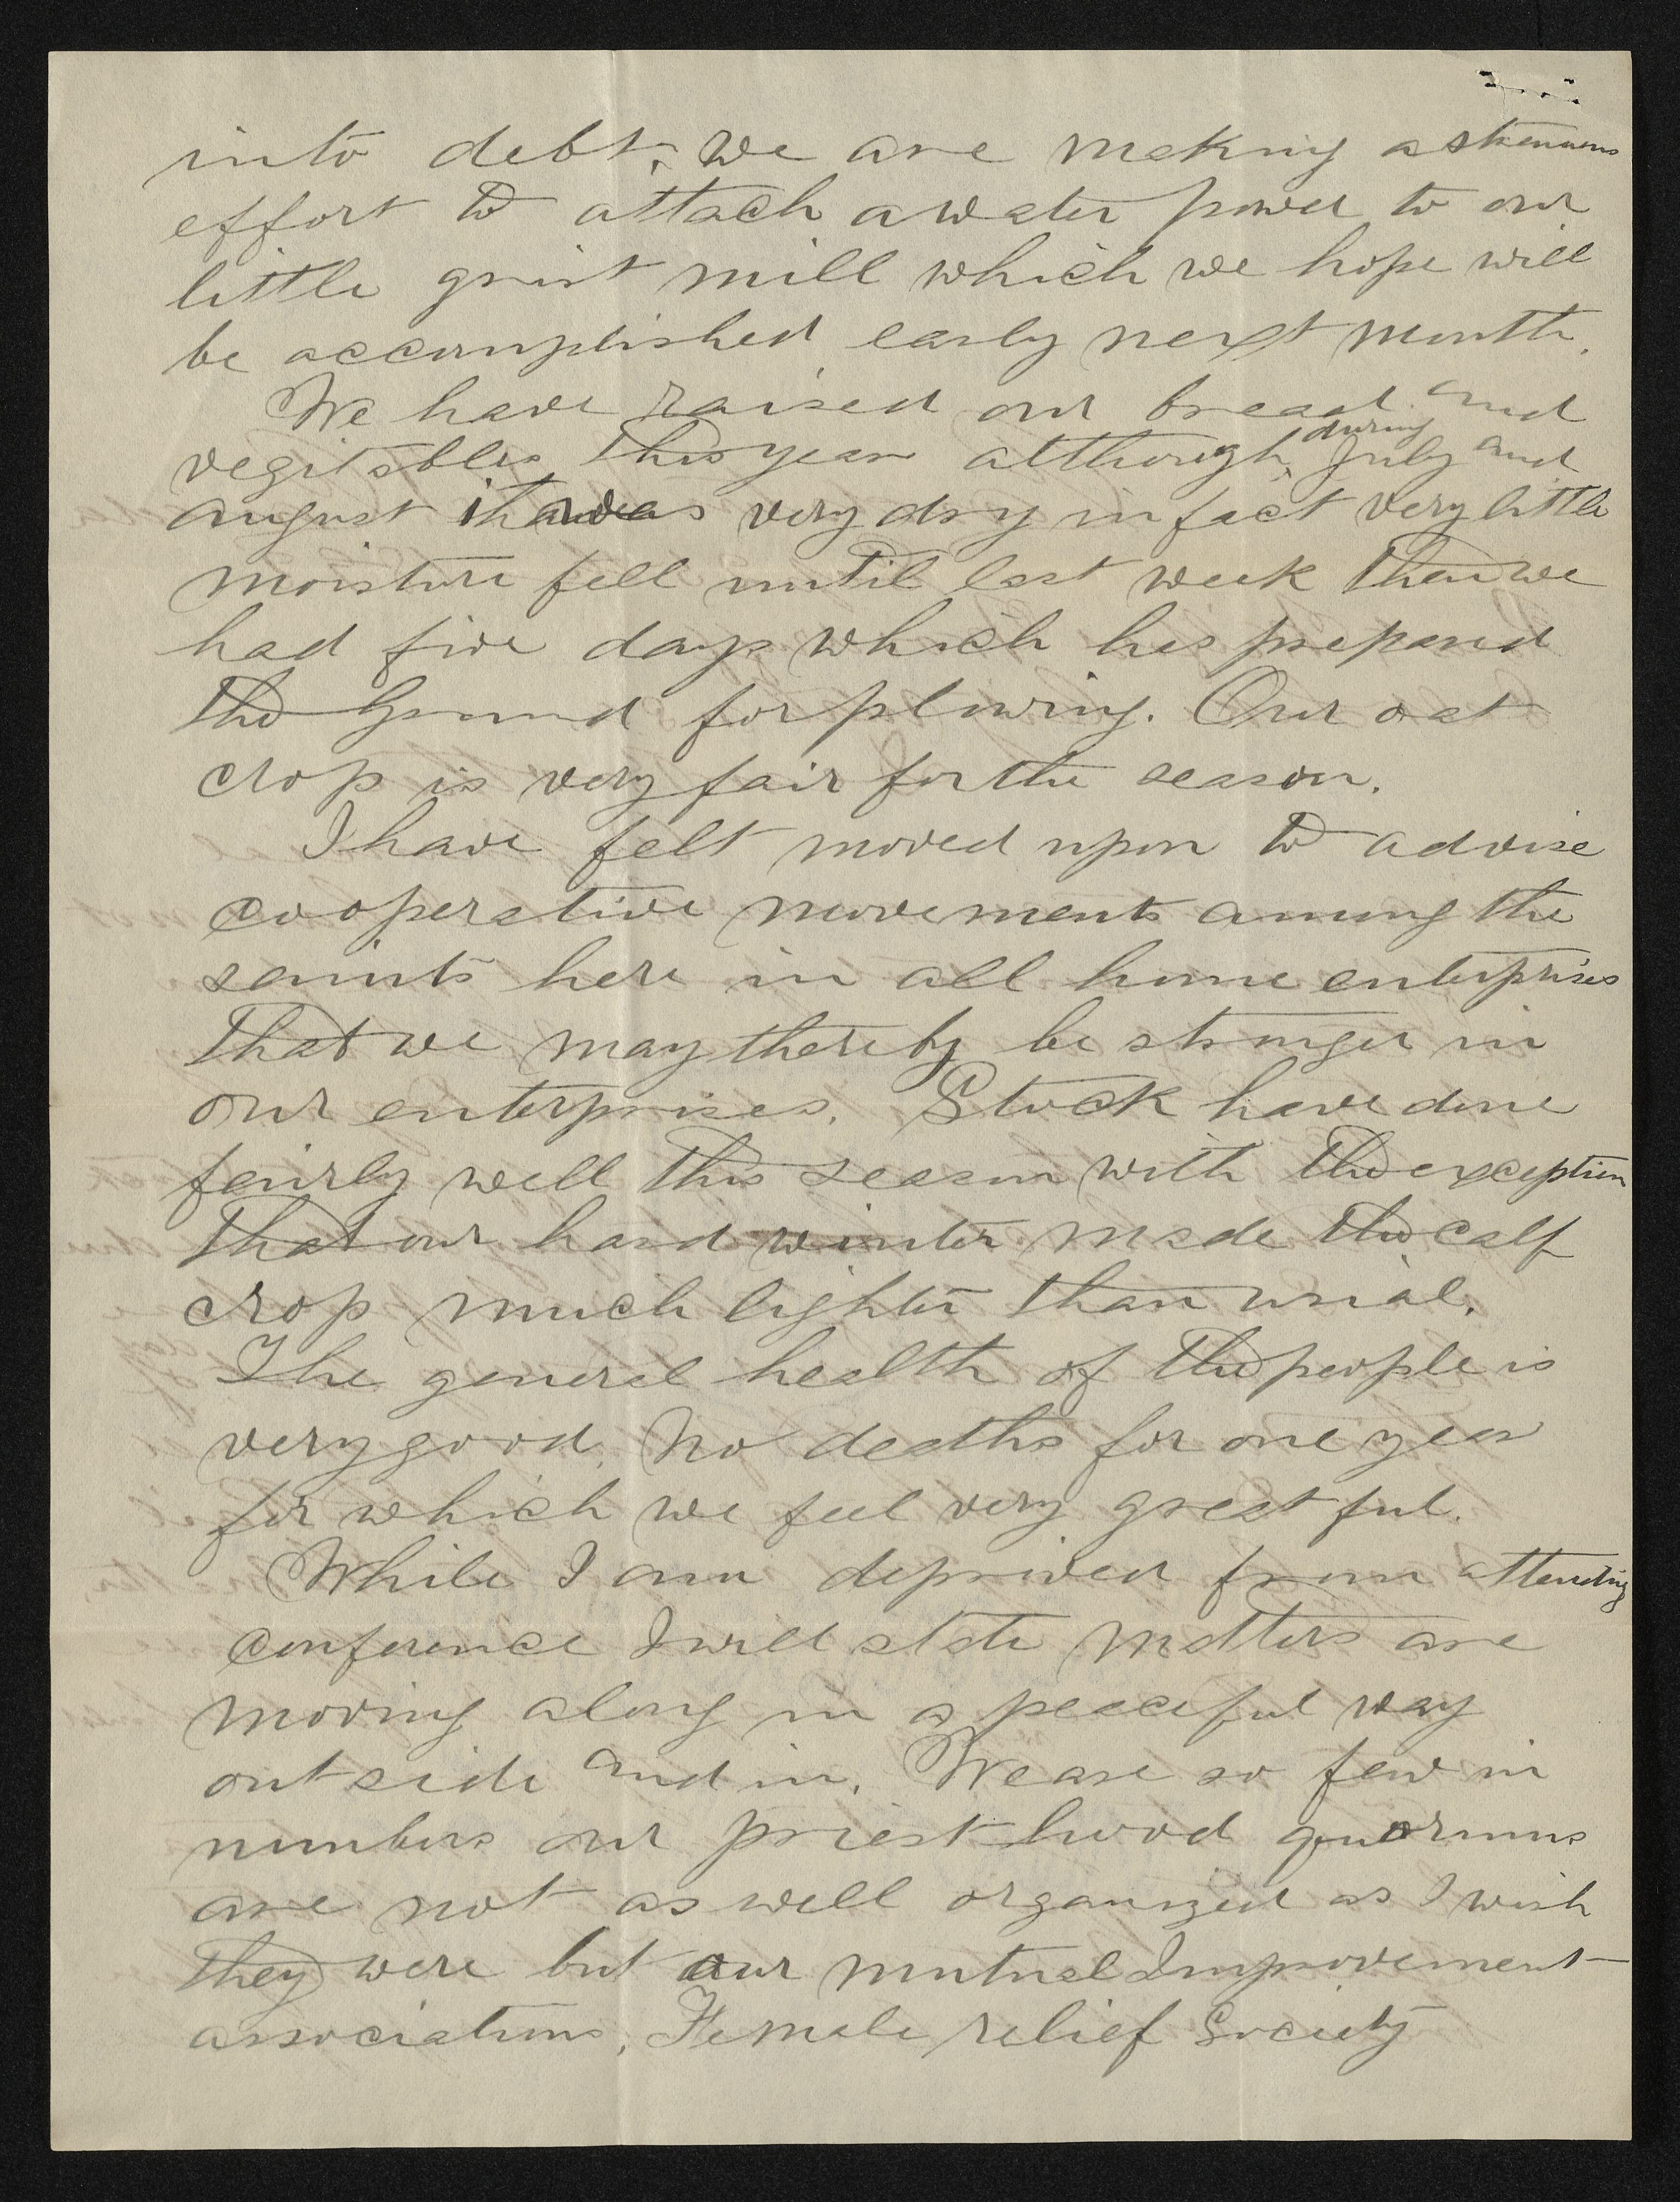 into debt. We are making a strenuous
effort to attach a water power to our
little grist mill which we hope will
be accomplished early next month.
We have raised our bread and
vegitables this year although during July and
august it was very dry in fact very little
moisture fell until last week then we
had five days which has prepared
the ground for plowing. Our oat
crop is very fair for the season.
I have felt moved upon to advise
cooperative movements among the
saints here in all home enterprises
that we may thereby be stronger in
our enterprises. Stock have done
fairly well this season with the exception
that our hard winter made the calf
crop much lighter than usial.
The general health of the people is
very good. No deaths for one year
for which we feel very greatful.
While I am deprived from attending
conference I will state matters are
moving along in a peaceful way
outside and in. We are so few in
numbers our priesthood quorums
are not as well organized as I wish
they were but our mutual Improvement
associations, Female relief Society